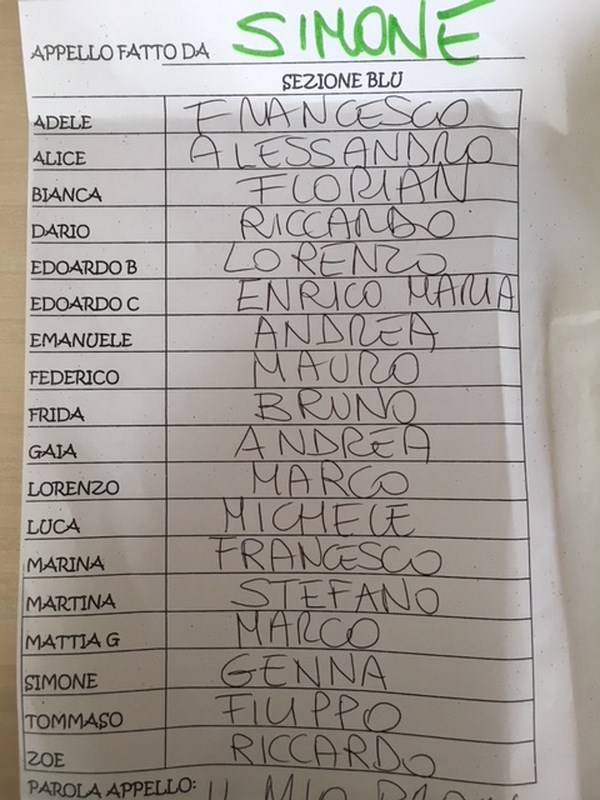 APPELLO FATTO DA SIMONE
SEZIONE BLU
ADELE FRANCESCO
ALICE ALESSANDRO
BIANCA FLORIAN
DARIO RICCARDO
EDOARDO B LORENZO
EDOARDO C ENRICO MARIA
EMANUELE ANDREA
FEDERICO MAURO
FRIDA BRUNO
GAIA ANDREA
LORENZO MARCO
LUCA MICHELE
MARINA FRANCESCO
MARTINA STEFANO
MATTIA G MARCO
SIMONE GENNA
TOMMASO FILIPPO
ZOE RICCARDO
PAROLA APPELLO: IL MIO